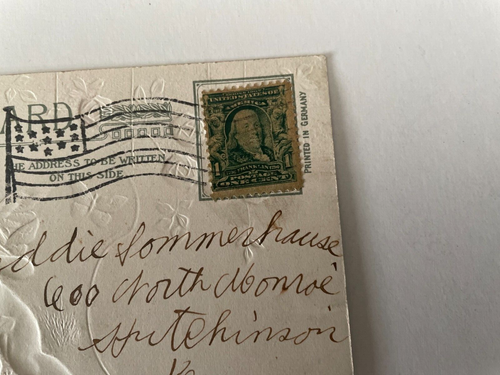 ARD
HE ADDRESS TO BE WRITTEN
ON THIS SIDE.
UNITED STATES OF
AMERICA
1 FRANKLIN 1
POSTAGE
ONE CENT
PRINTED IN GERMANY
ddie Sommerhause
600 North Monroe
Hutchinson
K